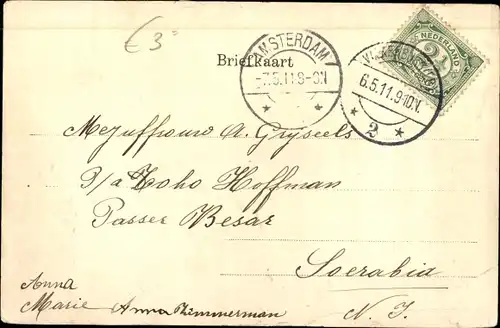 € 3
Briefkaart
AMSTERDAM
-7.5.11.8-9.N
6.5.11.9-10V.
2
NEDERLAND
2½
Mejuffrouw A. Gryseels
P/a Toko Hoffman
Passer Besar
Soerabia
N. I.
Anna
Marie
Anna Zimmerman